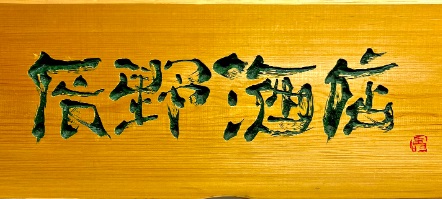 信野酒店